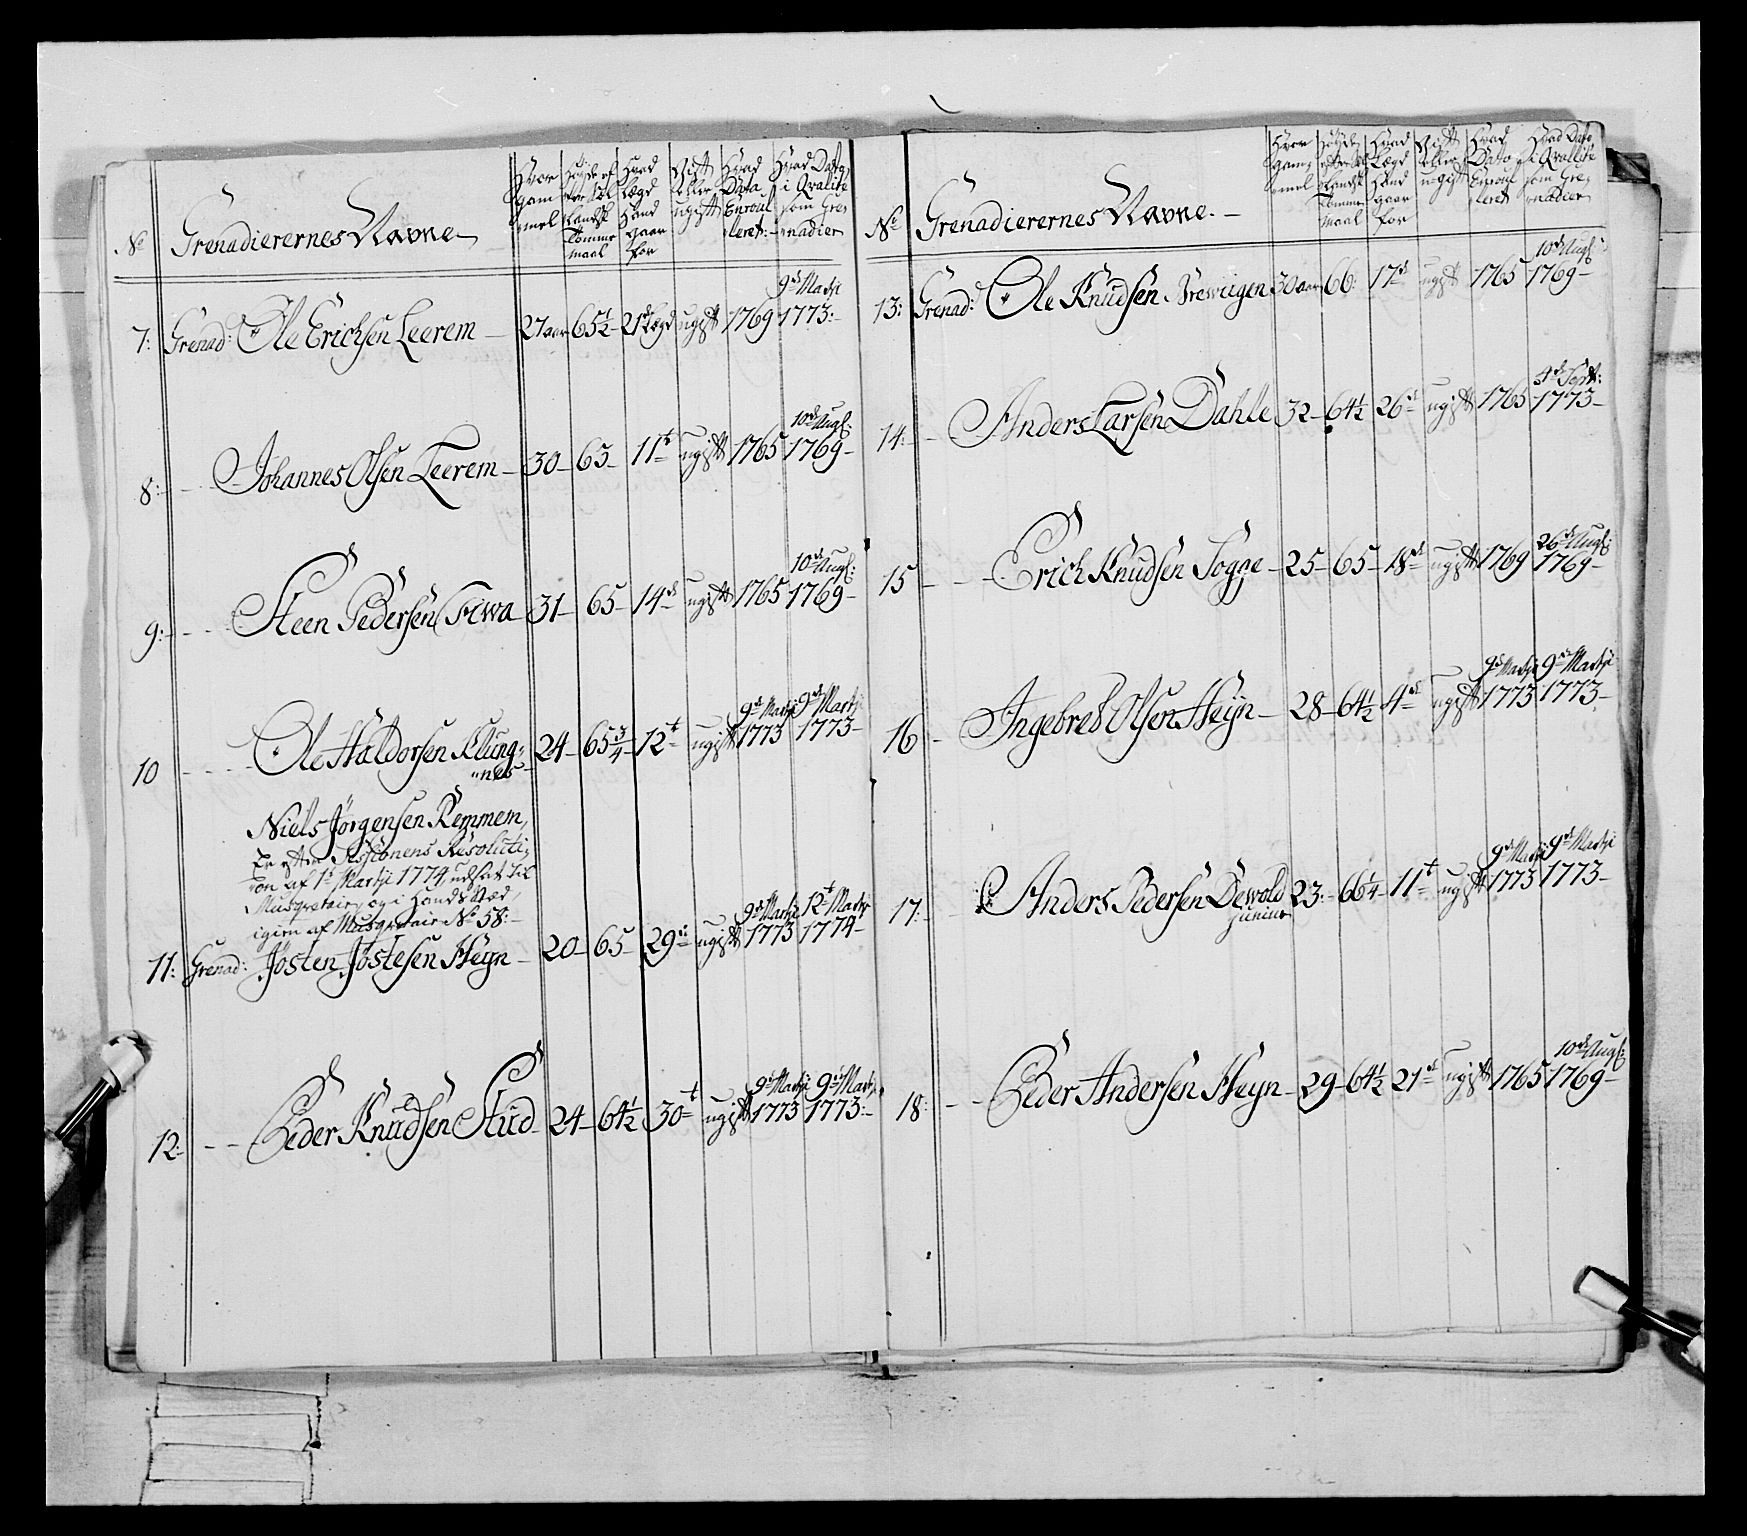 No Grenadierernes Navne Hvor gammel Høyde af Sel. landsk Tomme maal Hvad Lægd Hand gaar for Gift eller ugift Hvad Dato Enroulleret Hvad Dato i Qvalite som Grenadier
7: Grenad: Ole Erichsen Leerem 27 aar 65½ 21t Lægd ugift 1769 9de Martji 1773
8: Johannes Olsen Leerem 30 63 11t ugift 1765 10de Aug: 1769
9: Steen Pedersen Fiwa 31 65 14de ugift 1765 10de Aug: 1769
10 Ole Haldorsen Klungnes 24 65¾ 12t ugift 9de Martji 1773 9de Martji 1773
Niels Jørgensen Remmem,
Er efter Sessionens Resoluti
on af 1t Martji 1774, udsat til
Musqvetair, og i hands Stæd
igien af Musqvetair No 58:
11: Grenad: Josten Jøstesen Heyn 20 65 29de ugift 9de Martji 1773 12t Martji 1774
12: Peder Knudsen Stud 24 64½ 30t ugift 9de Martji 1773 9de Martji 1773
No Grenadierernes Navne Hvor gammel Høyde landsk Tomme maal Hvad Lægd Hand gaar for Gift eller ugift Hvad Dato Enroulleret Hvad Dato i Qvalite som Grenadier
13: Grenad: Ole Knudsen 30 aar 66 17de ugift 1765 10de Aug: 1769
14: Anders Larsen Dahle 32 64½ 26t ugift 1765 Sept: 1773
15 Erich Knudsen Sogge 25 65 18de ugift 1769 26de Aug: 1769
16 Ingebret Olsen Heyn 28 64½ 4de ugift 9de Martji 1773 9de Martji 1773
17: Anders Pedersen Dewold junior 23 66¼ 11t ugift 9de Martji 1773 9de Martji 1773
18: Peder Andersen Heyn 29 64½ 21de ugift 1765 10de Aug: 1769